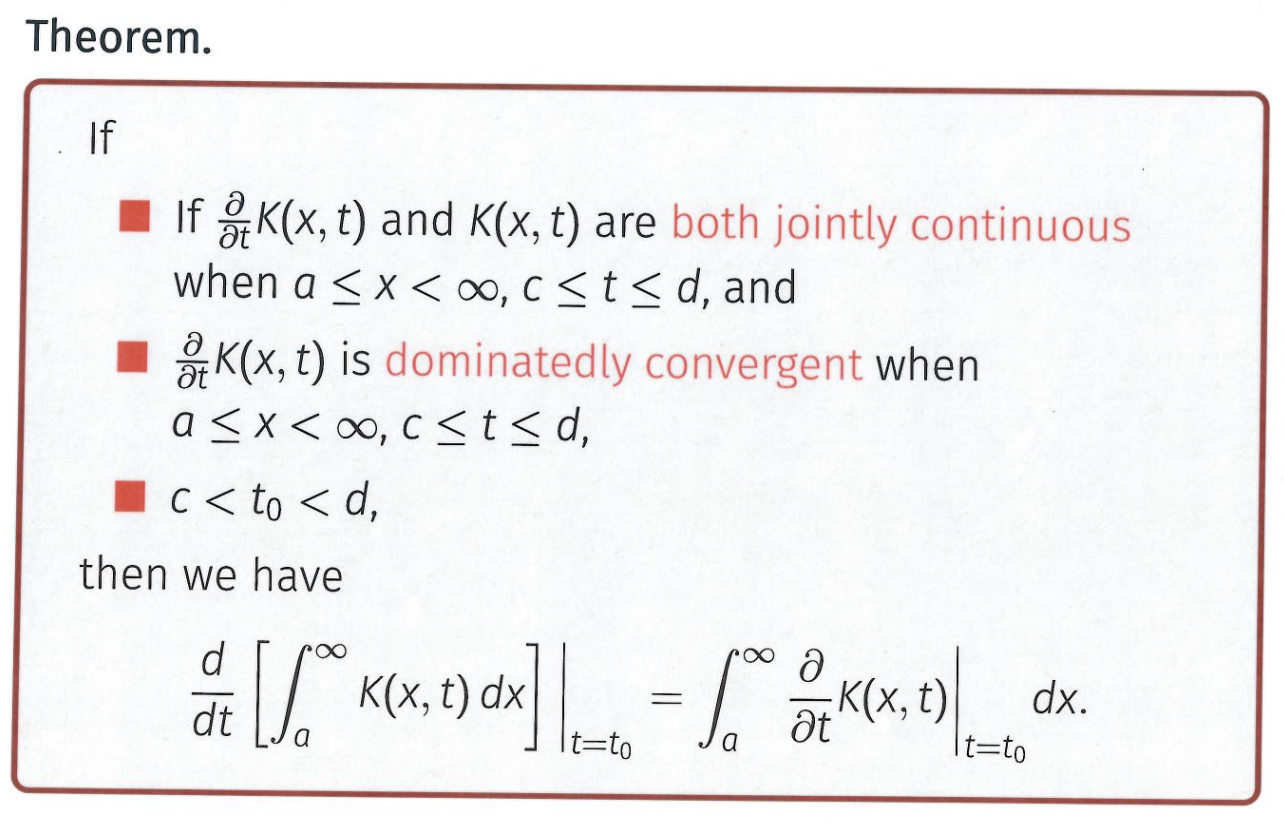 Theorem.
If
■ If ∂/∂t K(x, t) and K(x, t) are both jointly continuous
when a ≤ x < ∞, c ≤ t ≤ d, and
■ ∂/∂t K(x, t) is dominatedly convergent when
a ≤ x < ∞, c ≤ t ≤ d,
■ c < t₀ < d,
then we have
d/dt [∫ₐ^∞ K(x, t) dx] |ₜ₌ₜ₀ = ∫ₐ^∞ ∂/∂t K(x, t)|ₜ₌ₜ₀ dx.